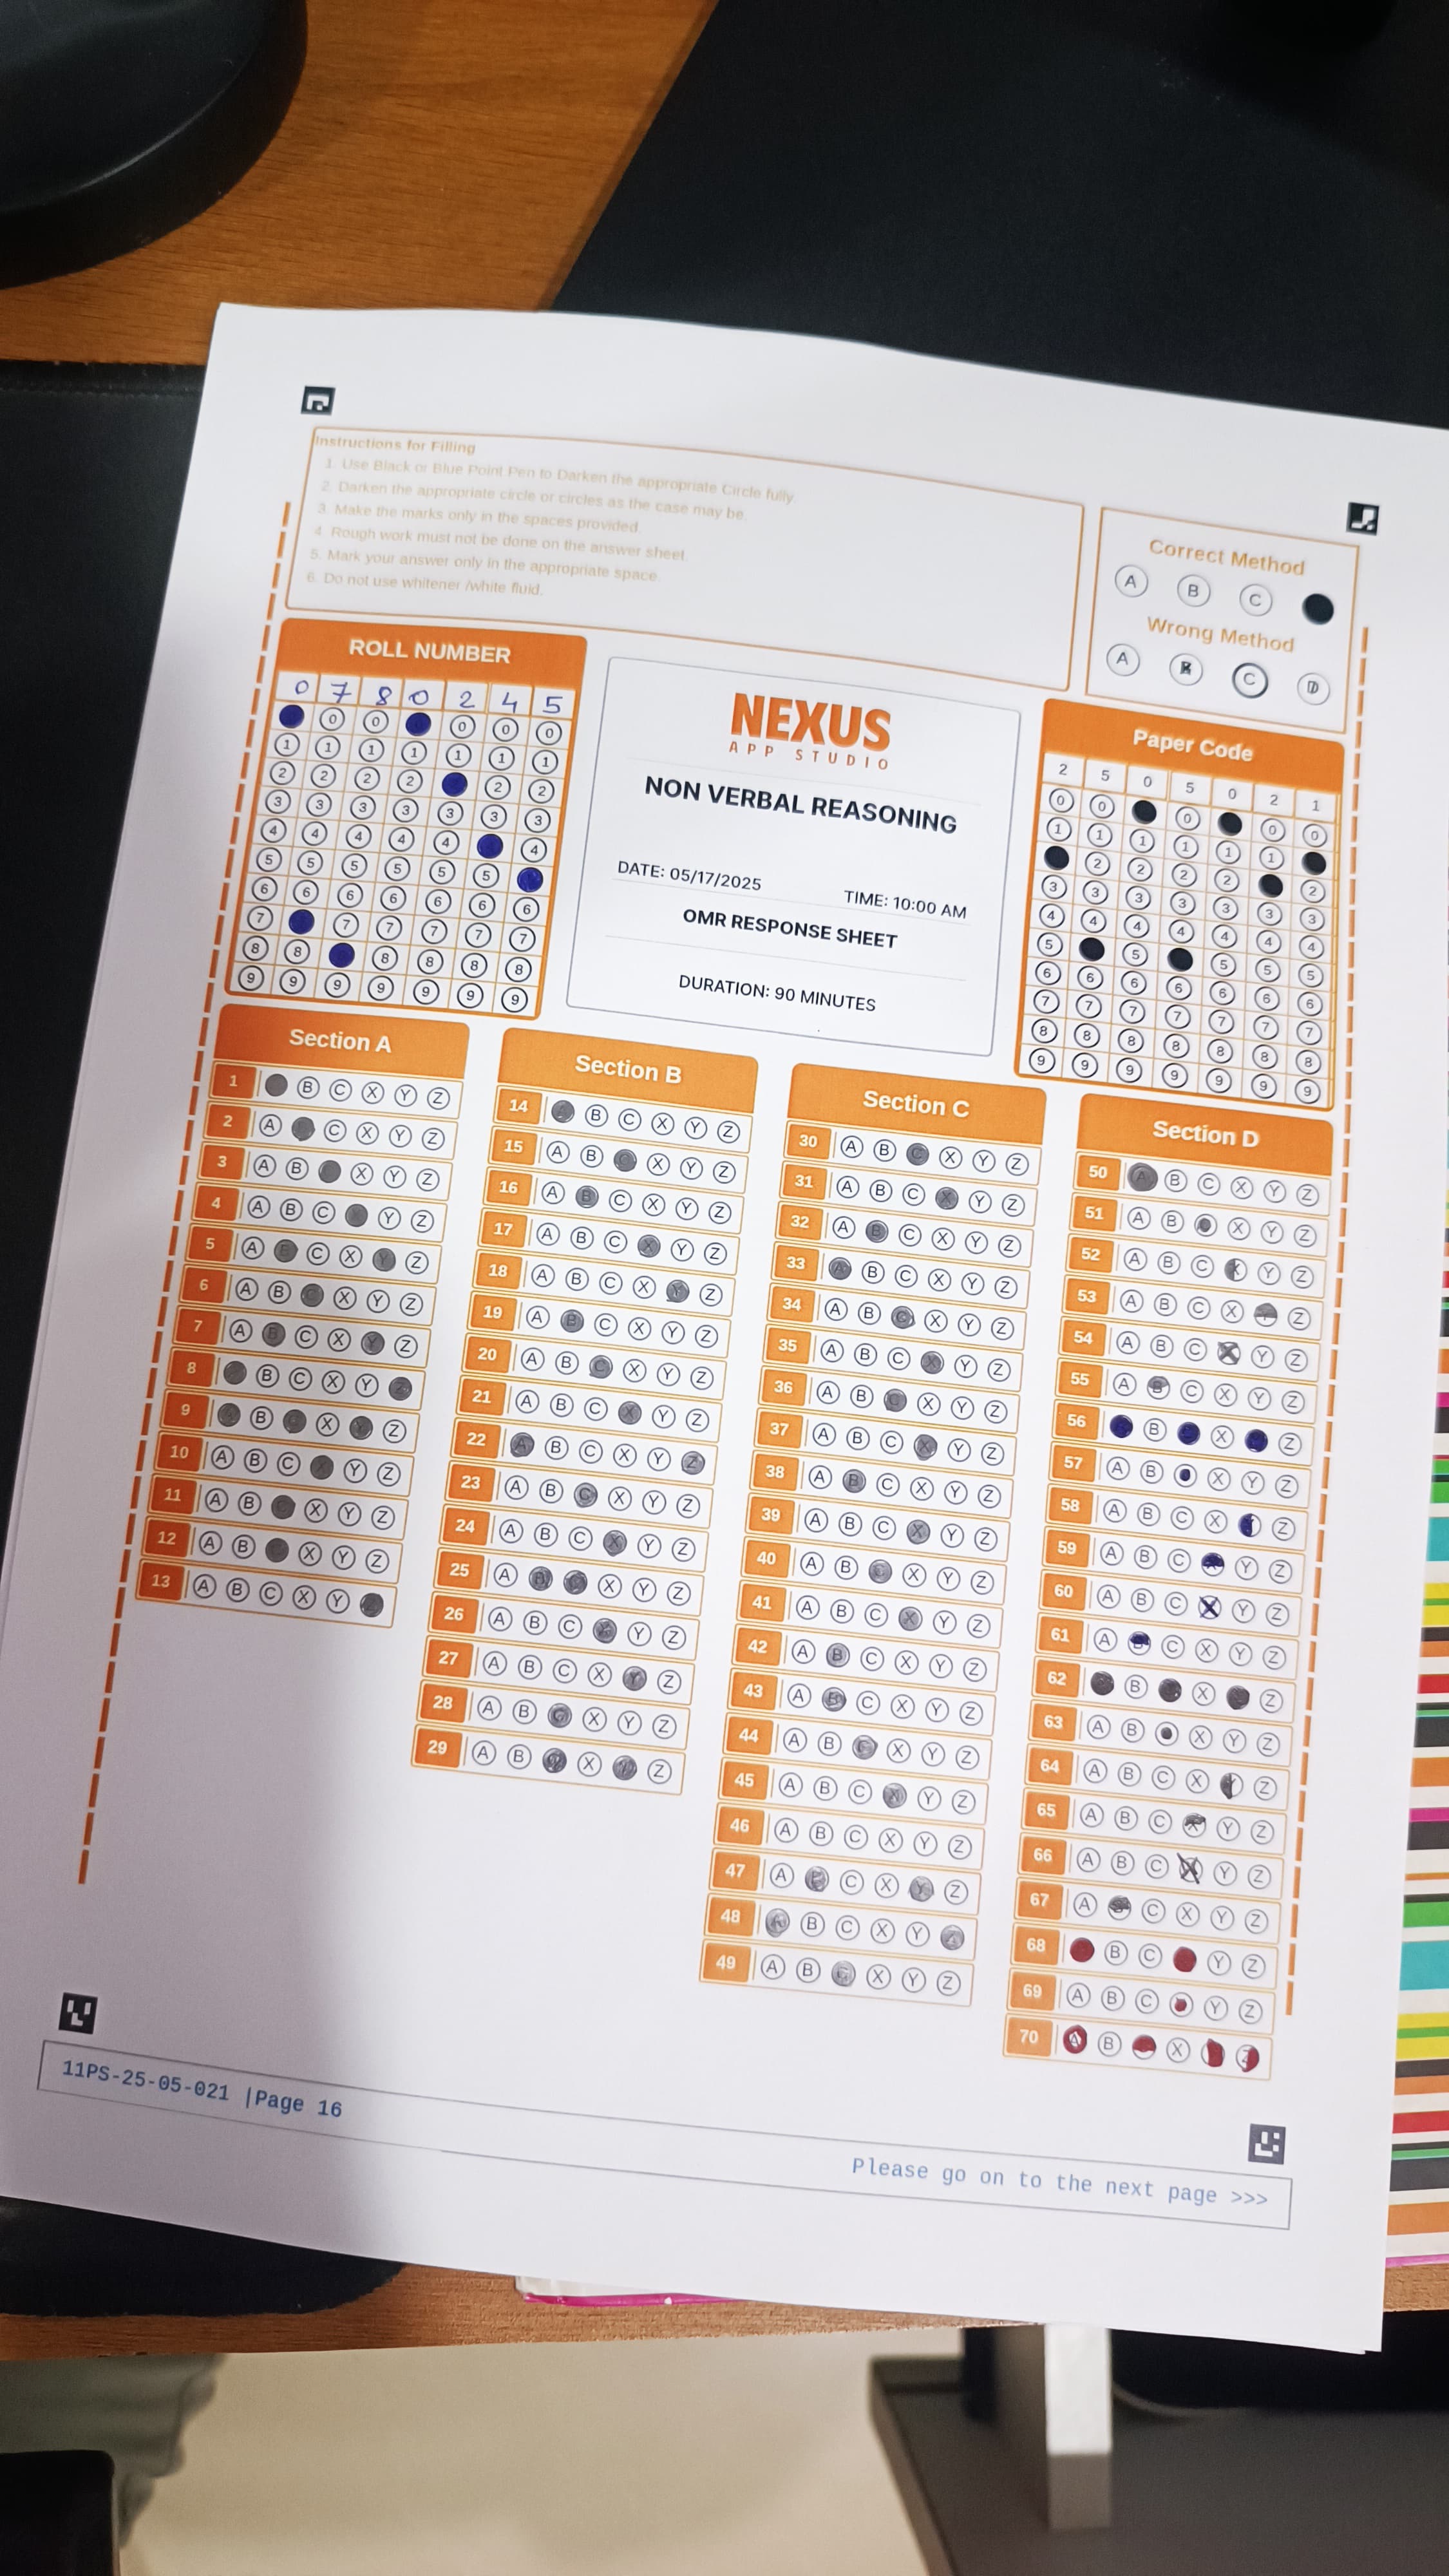 Instructions for Filling
1. Use Black or Blue Point Pen to Darken the appropriate Circle fully
2. Darken the appropriate circle or circles as the case may be.
3. Make the marks only in the spaces provided.
4. Rough work must not be done on the answer sheet.
5. Mark your answer only in the appropriate space.
6. Do not use whitener /white fluid.
Correct Method
A B C
Wrong Method
A B C D
ROLL NUMBER
0 7 8 0 2 4 5
0 0 0 0 0
1 1 1 1 1 1 1
2 2 2 2 2 2
3 3 3 3 3 3 3
4 4 4 4 4 4
5 5 5 5 5 5
6 6 6 6 6 6 6
7 7 7 7 7 7
8 8 8 8 8 8
9 9 9 9 9 9 9
NEXUS
APP STUDIO
NON VERBAL REASONING
DATE: 05/17/2025 TIME: 10:00 AM
OMR RESPONSE SHEET
DURATION: 90 MINUTES
Paper Code
2 5 0 5 0 2 1
0 0 0 0 0
1 1 1 1 1 1
2 2 2 2 2
3 3 3 3 3 3 3
4 4 4 4 4 4 4
5 5 5 5 5
6 6 6 6 6 6 6
7 7 7 7 7 7 7
8 8 8 8 8 8 8
9 9 9 9 9 9 9
Section A
1 B C X Y Z
2 A C X Y Z
3 A B X Y Z
4 A B C Y Z
5 A B C X Y Z
6 A B X Y Z
7 A B C X Y Z
8 B C X Y Z
9 B X Y Z
10 A B C X Y Z
11 A B C X Y Z
12 A B X Y Z
13 A B C X Y
Section B
14 A B C X Y Z
15 A B C X Y Z
16 A B C X Y Z
17 A B C X Y Z
18 A B C X Y Z
19 A B C X Y Z
20 A B C X Y Z
21 A B C X Y Z
22 A B C X Y Z
23 A B C X Y Z
24 A B C X Y Z
25 A B C X Y Z
26 A B C X Y Z
27 A B C X Y Z
28 A B C X Y Z
29 A B X Z
Section C
30 A B C X Y Z
31 A B C X Y Z
32 A B C X Y Z
33 A B C X Y Z
34 A B C X Y Z
35 A B C X Y Z
36 A B C X Y Z
37 A B C X Y Z
38 A B C X Y Z
39 A B C X Y Z
40 A B C X Y Z
41 A B C X Y Z
42 A B C X Y Z
43 A B C X Y Z
44 A B C X Y Z
45 A B C X Y Z
46 A B C X Y Z
47 A B C X Y Z
48 A B C X Y Z
49 A B C X Y Z
Section D
50 A B C X Y Z
51 A B X Y Z
52 A B C X Y Z
53 A B C X Z
54 A B C X Y Z
55 A B C X Y Z
56 B X Z
57 A B X Y Z
58 A B C X Z
59 A B C Y Z
60 A B C X Y Z
61 A B C X Y Z
62 B X Z
63 A B X Y Z
64 A B C X Y Z
65 A B C X Y Z
66 A B C X Y Z
67 A C X Y Z
68 B C Y Z
69 A B C Y Z
70 A B X Z
11PS-25-05-021 |Page 16
Please go on to the next page >>>